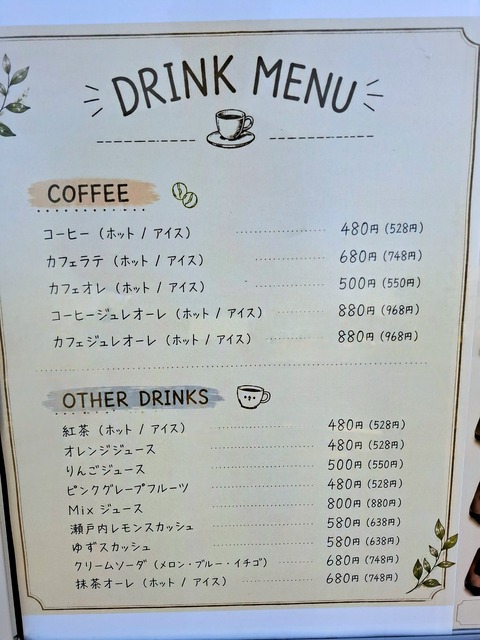 DRINK MENU
COFFEE
コーヒー（ホット / アイス） 480円（528円）
カフェラテ（ホット / アイス） 680円（748円）
カフェオレ（ホット / アイス） 500円（550円）
コーヒージュレオーレ（ホット / アイス） 880円（968円）
カフェジュレオーレ（ホット / アイス） 880円（968円）
OTHER DRINKS
紅茶（ホット / アイス） 480円（528円）
オレンジジュース 480円（528円）
りんごジュース 500円（550円）
ピンクグレープフルーツ 480円（528円）
Mix ジュース 800円（880円）
瀬戸内レモンスカッシュ 580円（638円）
ゆずスカッシュ 580円（638円）
クリームソーダ（メロン・ブルー・イチゴ） 680円（748円）
抹茶オーレ（ホット / アイス） 680円（748円）